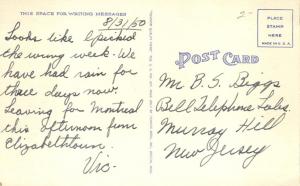 THIS SPACE FOR WRITING MESSAGES
8/31/50
Looks like I picked
the wrong week. We
have had rain for
three days now.
Leaving for Montreal
this afternoon from
Elizabethtown.
Vic.
2-
POST CARD
PLACE
STAMP
HERE
MADE IN U.S.A.
Mr B. S. Biggs
Bell Telephone Labs.
Murray Hill
New Jersey